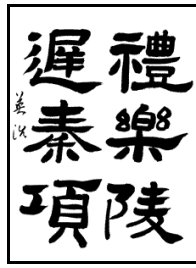 禮樂陵
遲秦項
英洗